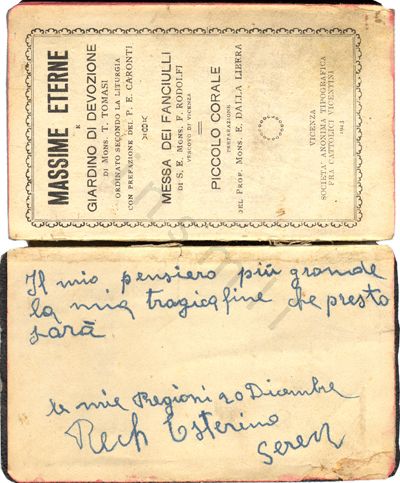 MASSIME ETERNE
E
GIARDINO DI DEVOZIONE
DI MONS. T. TOMASI
ORDINATO SECONDO LA LITURGIA
CON PREFAZIONE DEL P. E. CARONTI
MESSA DEI FANCIULLI
DI S. E. MONS. F. RODOLFI
VESCOVO DI VICENZA
PICCOLO CORALE
PREPARAZIONE
DEL PROF. MONS. E. DALLA LIBERA
VICENZA
SOCIETÀ ANONIMA TIPOGRAFICA
FRA CATTOLICI VICENTINI
Il mio pensiero più grande
la mia tragica fine che presto
sarà
le mie Pregioni 20 Dicembre
Rech Esterino
Seren